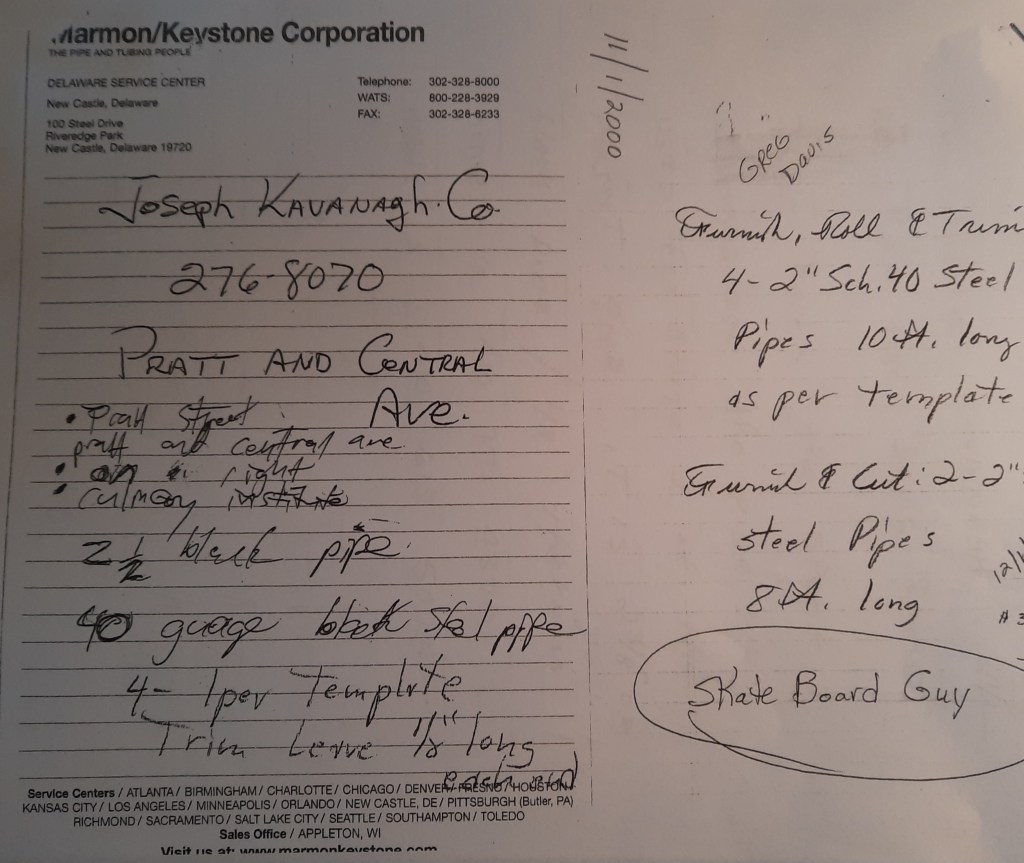 Marmon/Keystone Corporation
THE PIPE AND TUBING PEOPLE
DELAWARE SERVICE CENTER
New Castle, Delaware
100 Steel Drive
Riveredge Park
New Castle, Delaware 19720
Telephone: 302-328-8000
WATS: 800-228-3929
FAX: 302-328-6233
Joseph KAVANAgh Co.
276-8070
PRATT AND CENTRAL
Ave.
• Pratt Street
pratt and central ave
• on right
• culinary institute
2 1/2 black pipe
40 guage black steel pipe
4- 1 per Template
Trim Leave 1/8" long
each end
Service Centers / ATLANTA / BIRMINGHAM / CHARLOTTE / CHICAGO / DENVER / FRESNO / HOUSTON /
KANSAS CITY / LOS ANGELES / MINNEAPOLIS / ORLANDO / NEW CASTLE, DE / PITTSBURGH (Butler, PA)
RICHMOND / SACRAMENTO / SALT LAKE CITY / SEATTLE / SOUTHAMPTON / TOLEDO
Sales Office / APPLETON, WI
Visit us at: www.marmonkeystone.com
11/1/2000
GREG
DAVIS
Furnish, Roll & Trim
4-2" Sch. 40 Steel
Pipes 10 ft. long
as per template
Furnish & Cut: 2-2"
steel Pipes
8 ft. long
Skate Board Guy